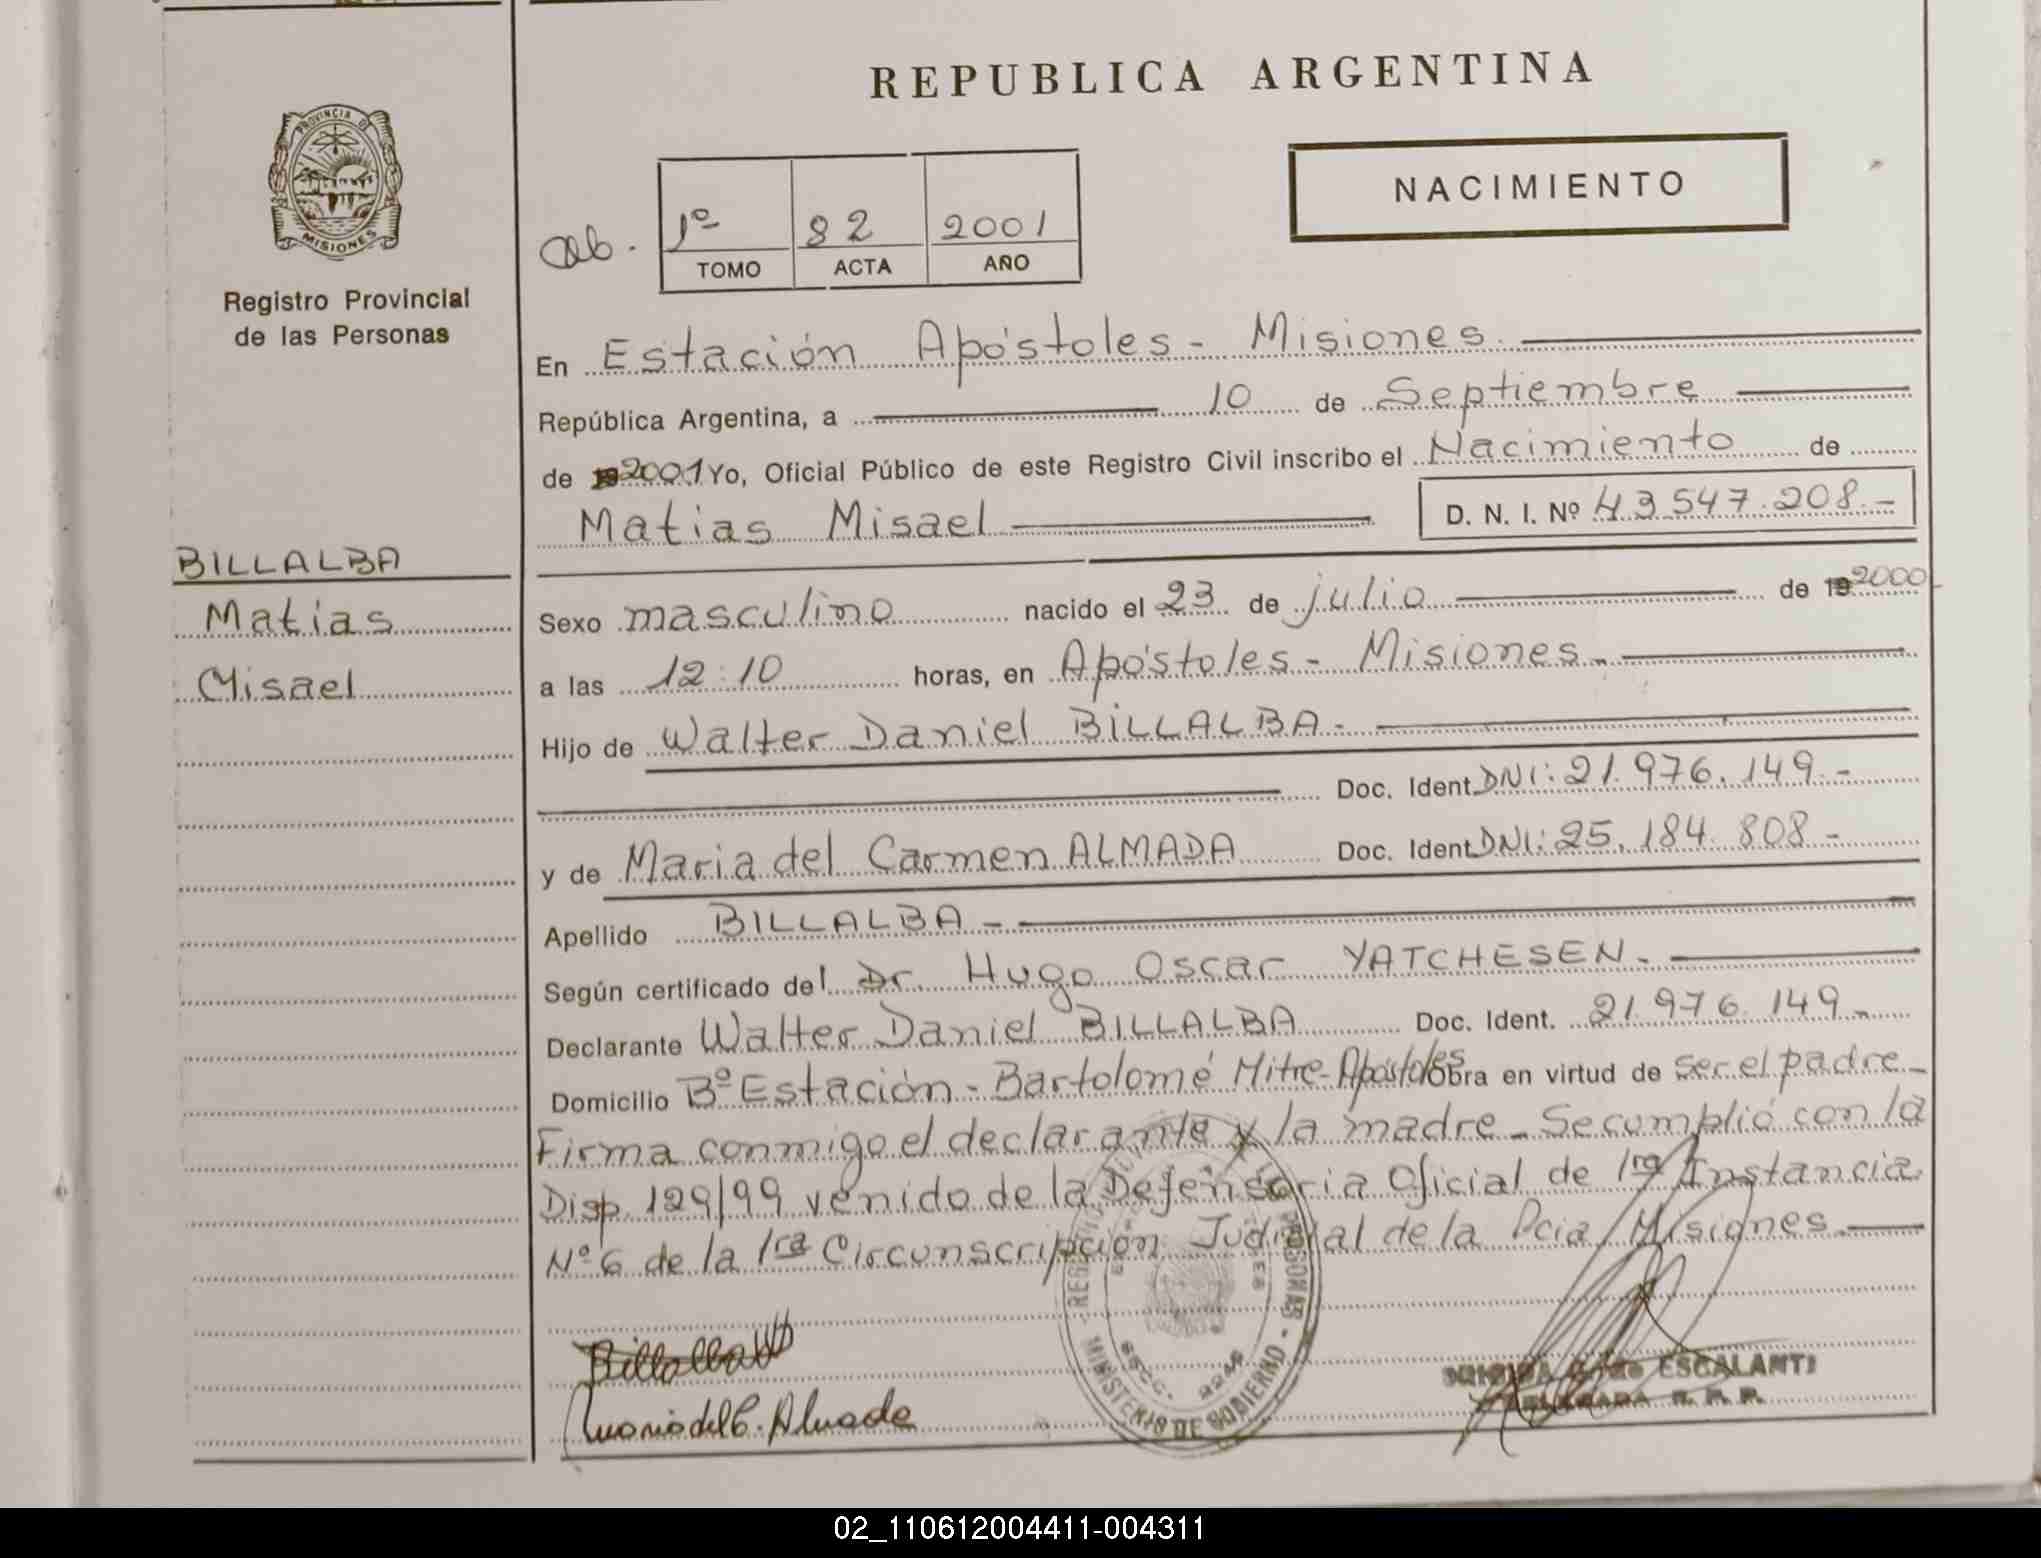 REPUBLICA ARGENTINA
PROVINCIA DE
MISIONES
Registro Provincial
de las Personas
NACIMIENTO
1º 82 2001
TOMO ACTA AÑO
En Estación Apóstoles - Misiones.
República Argentina, a 10 de Septiembre
de 2001 Yo, Oficial Público de este Registro Civil inscribo el Nacimiento de
Matias Misael D. N. I. Nº 43.547.208.-
BILLALBA
Matias
Misael
Sexo masculino nacido el 23 de julio de 2000
a las 12:10 horas, en Apóstoles - Misiones.
Hijo de Walter Daniel BILLALBA.-
Doc. Ident. DNI: 21.976.149.-
y de Maria del Carmen ALMADA Doc. Ident. DNI: 25.184.808-
Apellido BILLALBA-
Según certificado del Dr. Hugo Oscar YATCHESEN.
Declarante Walter Daniel BILLALBA Doc. Ident. 21.976.149-
Domicilio Bº Estación - Bartolomé Mitre - Apóstoles Obra en virtud de ser el padre-
Firma conmigo el declarante y la madre - Se cumplió con la
Disp. 129/99 venido de la Defensoria Oficial de 1ra Instancia
Nº 6 de la 1ra Circunscripción Judicial de la Pcia Misiones.
Billalba W
Maria del C. Almada
MINISTERIO DE GOBIERNO
ESCALANTE
02_110612004411-004311